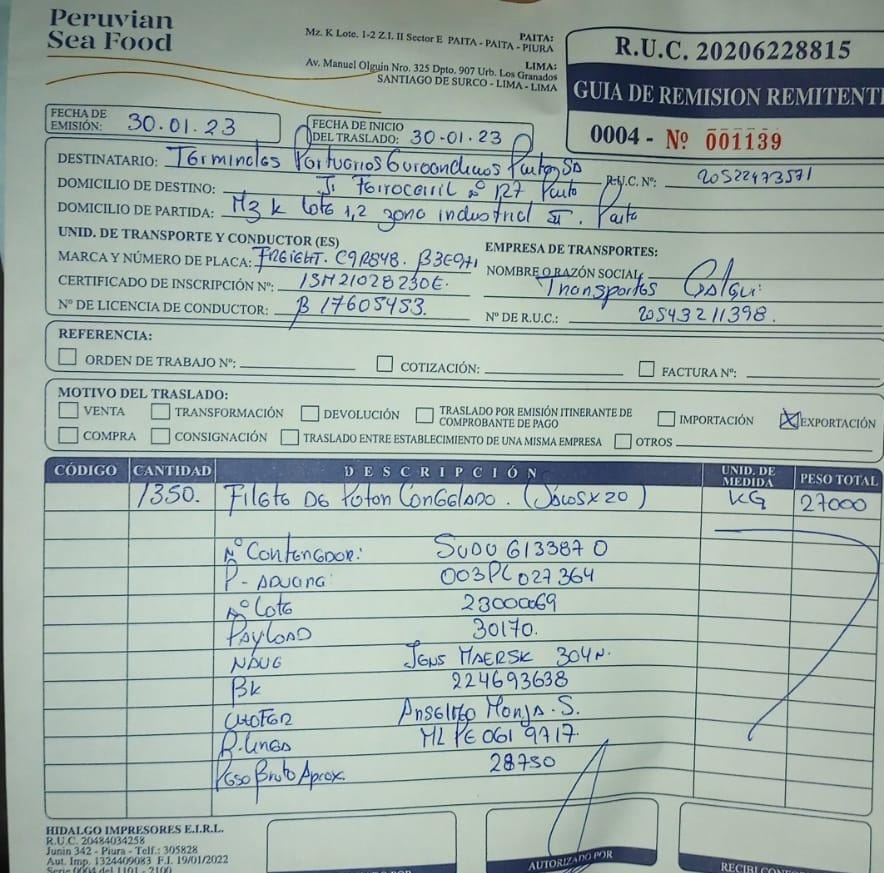 Peruvian
Sea Food
PAITA:
Mz. K Lote. 1-2 Z.I. II Sector E PAITA - PAITA - PIURA
LIMA:
Av. Manuel Olguin Nro. 325 Dpto. 907 Urb. Los Granados
SANTIAGO DE SURCO - LIMA - LIMA
R.U.C. 20206228815
GUIA DE REMISION REMITENTE
0004 - Nº 001139
FECHA DE EMISIÓN: 30.01.23
FECHA DE INICIO DEL TRASLADO: 30-01-23
DESTINATARIO: Terminales Portuarios Euroandinos Paita SA R.U.C. Nº: 20522473571
DOMICILIO DE DESTINO: Jr. Ferrocarril nº 127 Paita
DOMICILIO DE PARTIDA: Mz K lote 1,2 zona industrial II. Paita
UNID. DE TRANSPORTE Y CONDUCTOR (ES)
MARCA Y NÚMERO DE PLACA: FREIGHT. C9R848. B3E971
CERTIFICADO DE INSCRIPCIÓN Nº: 15M21028230E.
Nº DE LICENCIA DE CONDUCTOR: B 17605453.
EMPRESA DE TRANSPORTES:
NOMBRE O RAZÓN SOCIAL
Transportes
Nº DE R.U.C.: 20543211398.
REFERENCIA:
ORDEN DE TRABAJO Nº: COTIZACIÓN: FACTURA Nº:
MOTIVO DEL TRASLADO:
VENTA TRANSFORMACIÓN DEVOLUCIÓN TRASLADO POR EMISIÓN ITINERANTE DE COMPROBANTE DE PAGO IMPORTACIÓN EXPORTACIÓN
COMPRA CONSIGNACIÓN TRASLADO ENTRE ESTABLECIMIENTO DE UNA MISMA EMPRESA OTROS
CÓDIGO CANTIDAD DESCRIPCIÓN UNID. DE MEDIDA PESO TOTAL
1350. Filete DE Poton CongelADO. (SACOS X 20) KG 27000
Nº Contenedor: SUDU 613387 0
P- ADUANA: 003PL027364
Nº lote 2300069
PAYLOAD 30170.
NAVE JENS MAERSK 304N.
BK 224693638
CHOFER Anselmo Monja. S.
P. linea ML PE 061 9717.
Peso Bruto Aprox. 28750
HIDALGO IMPRESORES E.I.R.L.
R.U.C. 20484034258
Junin 342 - Piura - Telf.: 305828
Aut. Imp. 1324409083 F.I. 19/01/2022
Serie 0004 del 1101 - 2100
AUTORIZADO POR